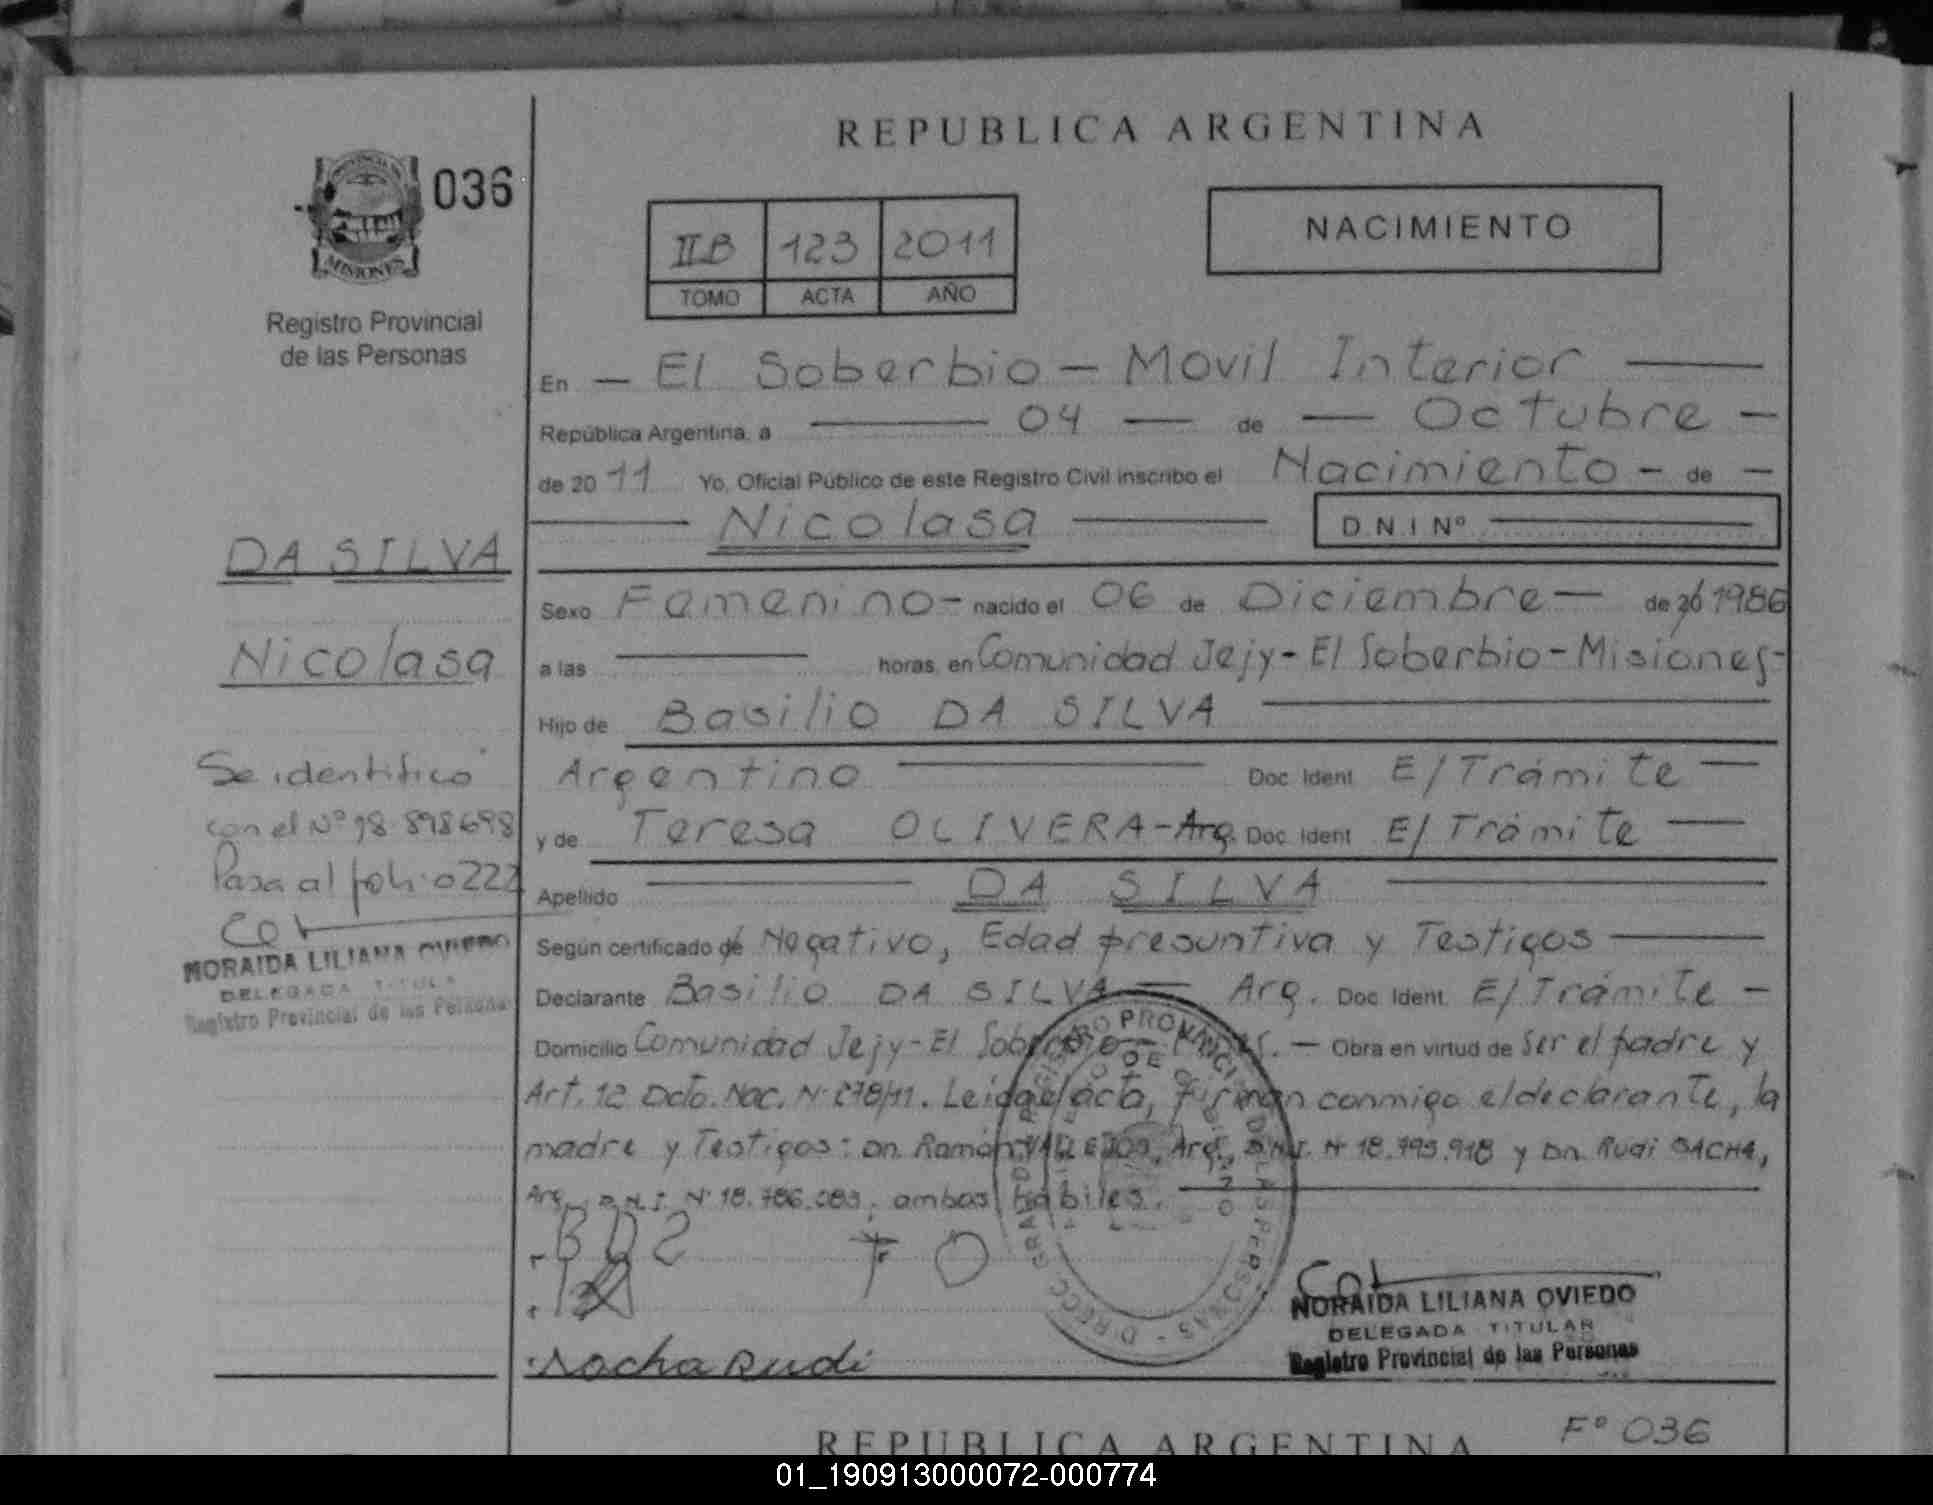 REPUBLICA ARGENTINA
PROVINCIA DE
MISIONES
036
Registro Provincial
de las Personas
IIB 123 2011
TOMO ACTA AÑO
NACIMIENTO
En — El Soberbio — Movil Interior —
República Argentina, a — 04 — de — Octubre —
de 20 11 Yo, Oficial Público de este Registro Civil inscribo el Nacimiento - de —
— Nicolasa — D.N.I Nº —
DA SILVA
Nicolasa
Sexo Femenino - nacido el 06 de Diciembre — de 1986
a las — horas, en Comunidad Jejy - El Soberbio - Misiones -
Hijo de Basilio DA SILVA —
Argentino — Doc. Ident. E/Trámite —
y de Teresa OLIVERA - Arg. Doc. Ident. E/Trámite —
Apellido — DA SILVA —
Se identifico
con el Nº
Pasa al folio 0222
NORAIDA LILIANA OVIEDO
DELEGADA TITULAR
Registro Provincial de las Personas
Según certificado de Negativo, Edad presuntiva y Testigos —
Declarante Basilio DA SILVA — Arg. Doc. Ident. E/Trámite —
Domicilio Comunidad Jejy - El Soberbio — Obra en virtud de ser el padre y
Art. 12 Dcto. Nac. Nº 278/11. Leida el acta, firman conmigo el declarante, la
madre y Testigos: Dn. Ramón VALLEJOS, Arg., D.N.I. Nº y Dn. Rudi SACHA,
Arg., D.N.I. Nº 18.786.083, ambos hábiles. —
Sacha Rudi
NORAIDA LILIANA OVIEDO
DELEGADA TITULAR
Registro Provincial de las Personas
Fº 036
REPUBLICA ARGENTINA
01_190913000072-000774